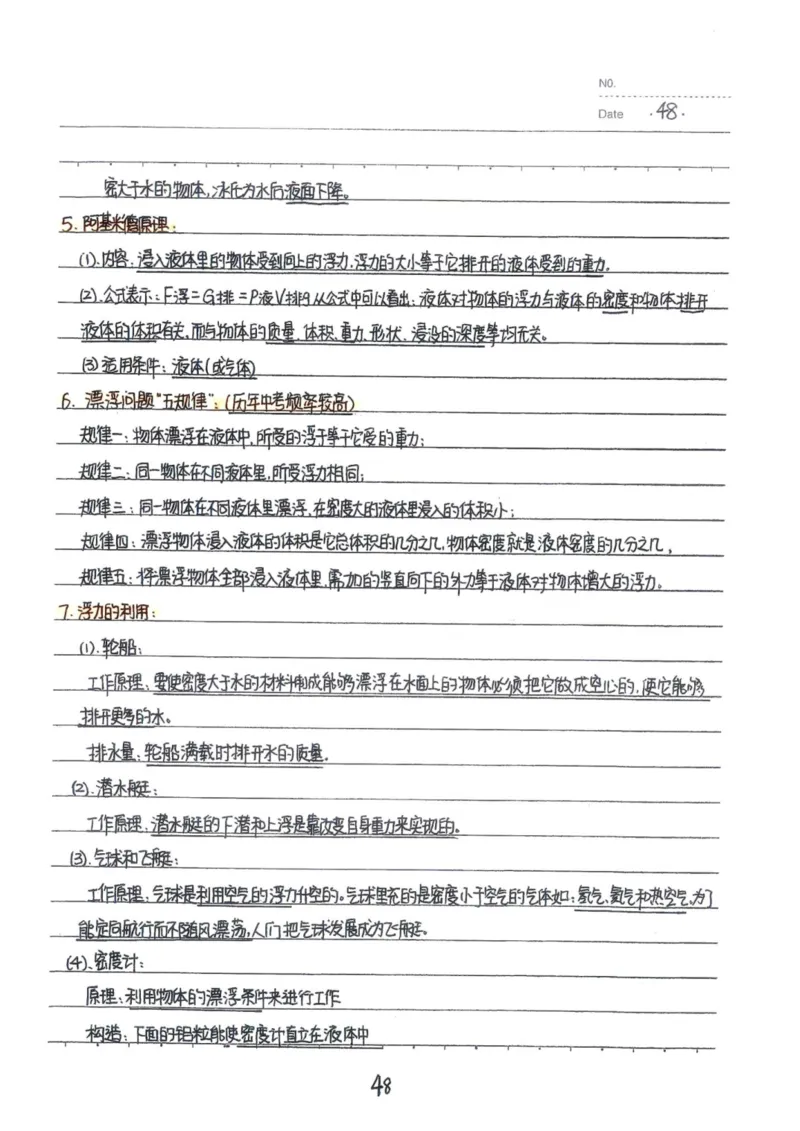 NO.
Date ·48·
密大于水的物体,冰化为水后液面下降。
5. 阿基米德原理:
(1).内容:浸入液体里的物体受到向上的浮力.浮力的大小等于它排开的液体受到的重力.
(2).公式表示:F浮=G排=P液V排g从公式中可以看出:液体对物体的浮力与液体的密度和物体排开
液体的体积有关,而与物体的质量、体积、重力、形状、浸没的深度等均无关。
(3)适用条件:液体(或气体)
6. 漂浮问题"五规律":(历年中考频率较高)
规律一:物体漂浮在液体中,所受的浮于等于它受的重力;
规律二:同一物体在不同液体里,所受浮力相同;
规律三:同一物体在不同液体里漂浮,在密度大的液体里浸入的体积小;
规律四:漂浮物体浸入液体的体积是它总体积的几分之几,物体密度就是液体密度的几分之几,
规律五:将漂浮物体全部浸入液体里,需加的竖直向下的外力等于液体对物体增大的浮力。
7. 浮力的利用:
(1).轮船:
工作原理:要使密度大于水的材料制成能够漂浮在水面上的物体必须把它做成空心的,使它能够
排开更多的水。
排水量:轮船满载时排开水的质量.
(2).潜水艇:
工作原理:潜水艇的下潜和上浮是靠改变自身重力来实现的。
(3).气球和飞艇:
工作原理:气球是利用空气的浮力升空的。气球里充的是密度小于空气的气体如:氢气、氦气和热空气.为了
能定向航行而不随风漂荡,人们把气球发展成为飞艇。
(4).密度计:
原理:利用物体的漂浮条件来进行工作
构造:下面的铝粒能使密度计直立在液体中
48